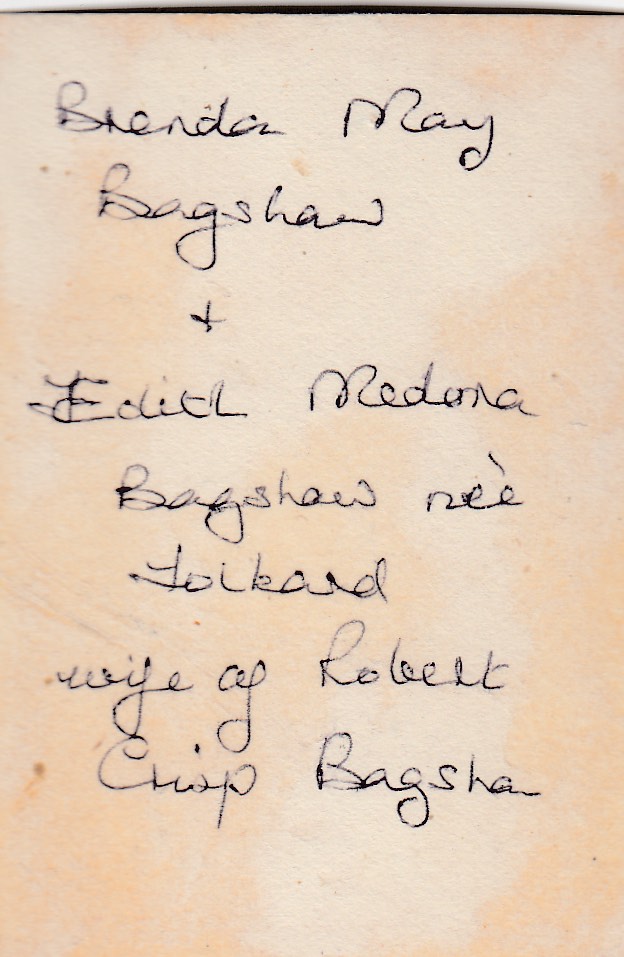 Brenda May
Bagshaw
+
Edith Medora
Bagshaw neè
Folkard
wife of Robert
Crisp Bagsha